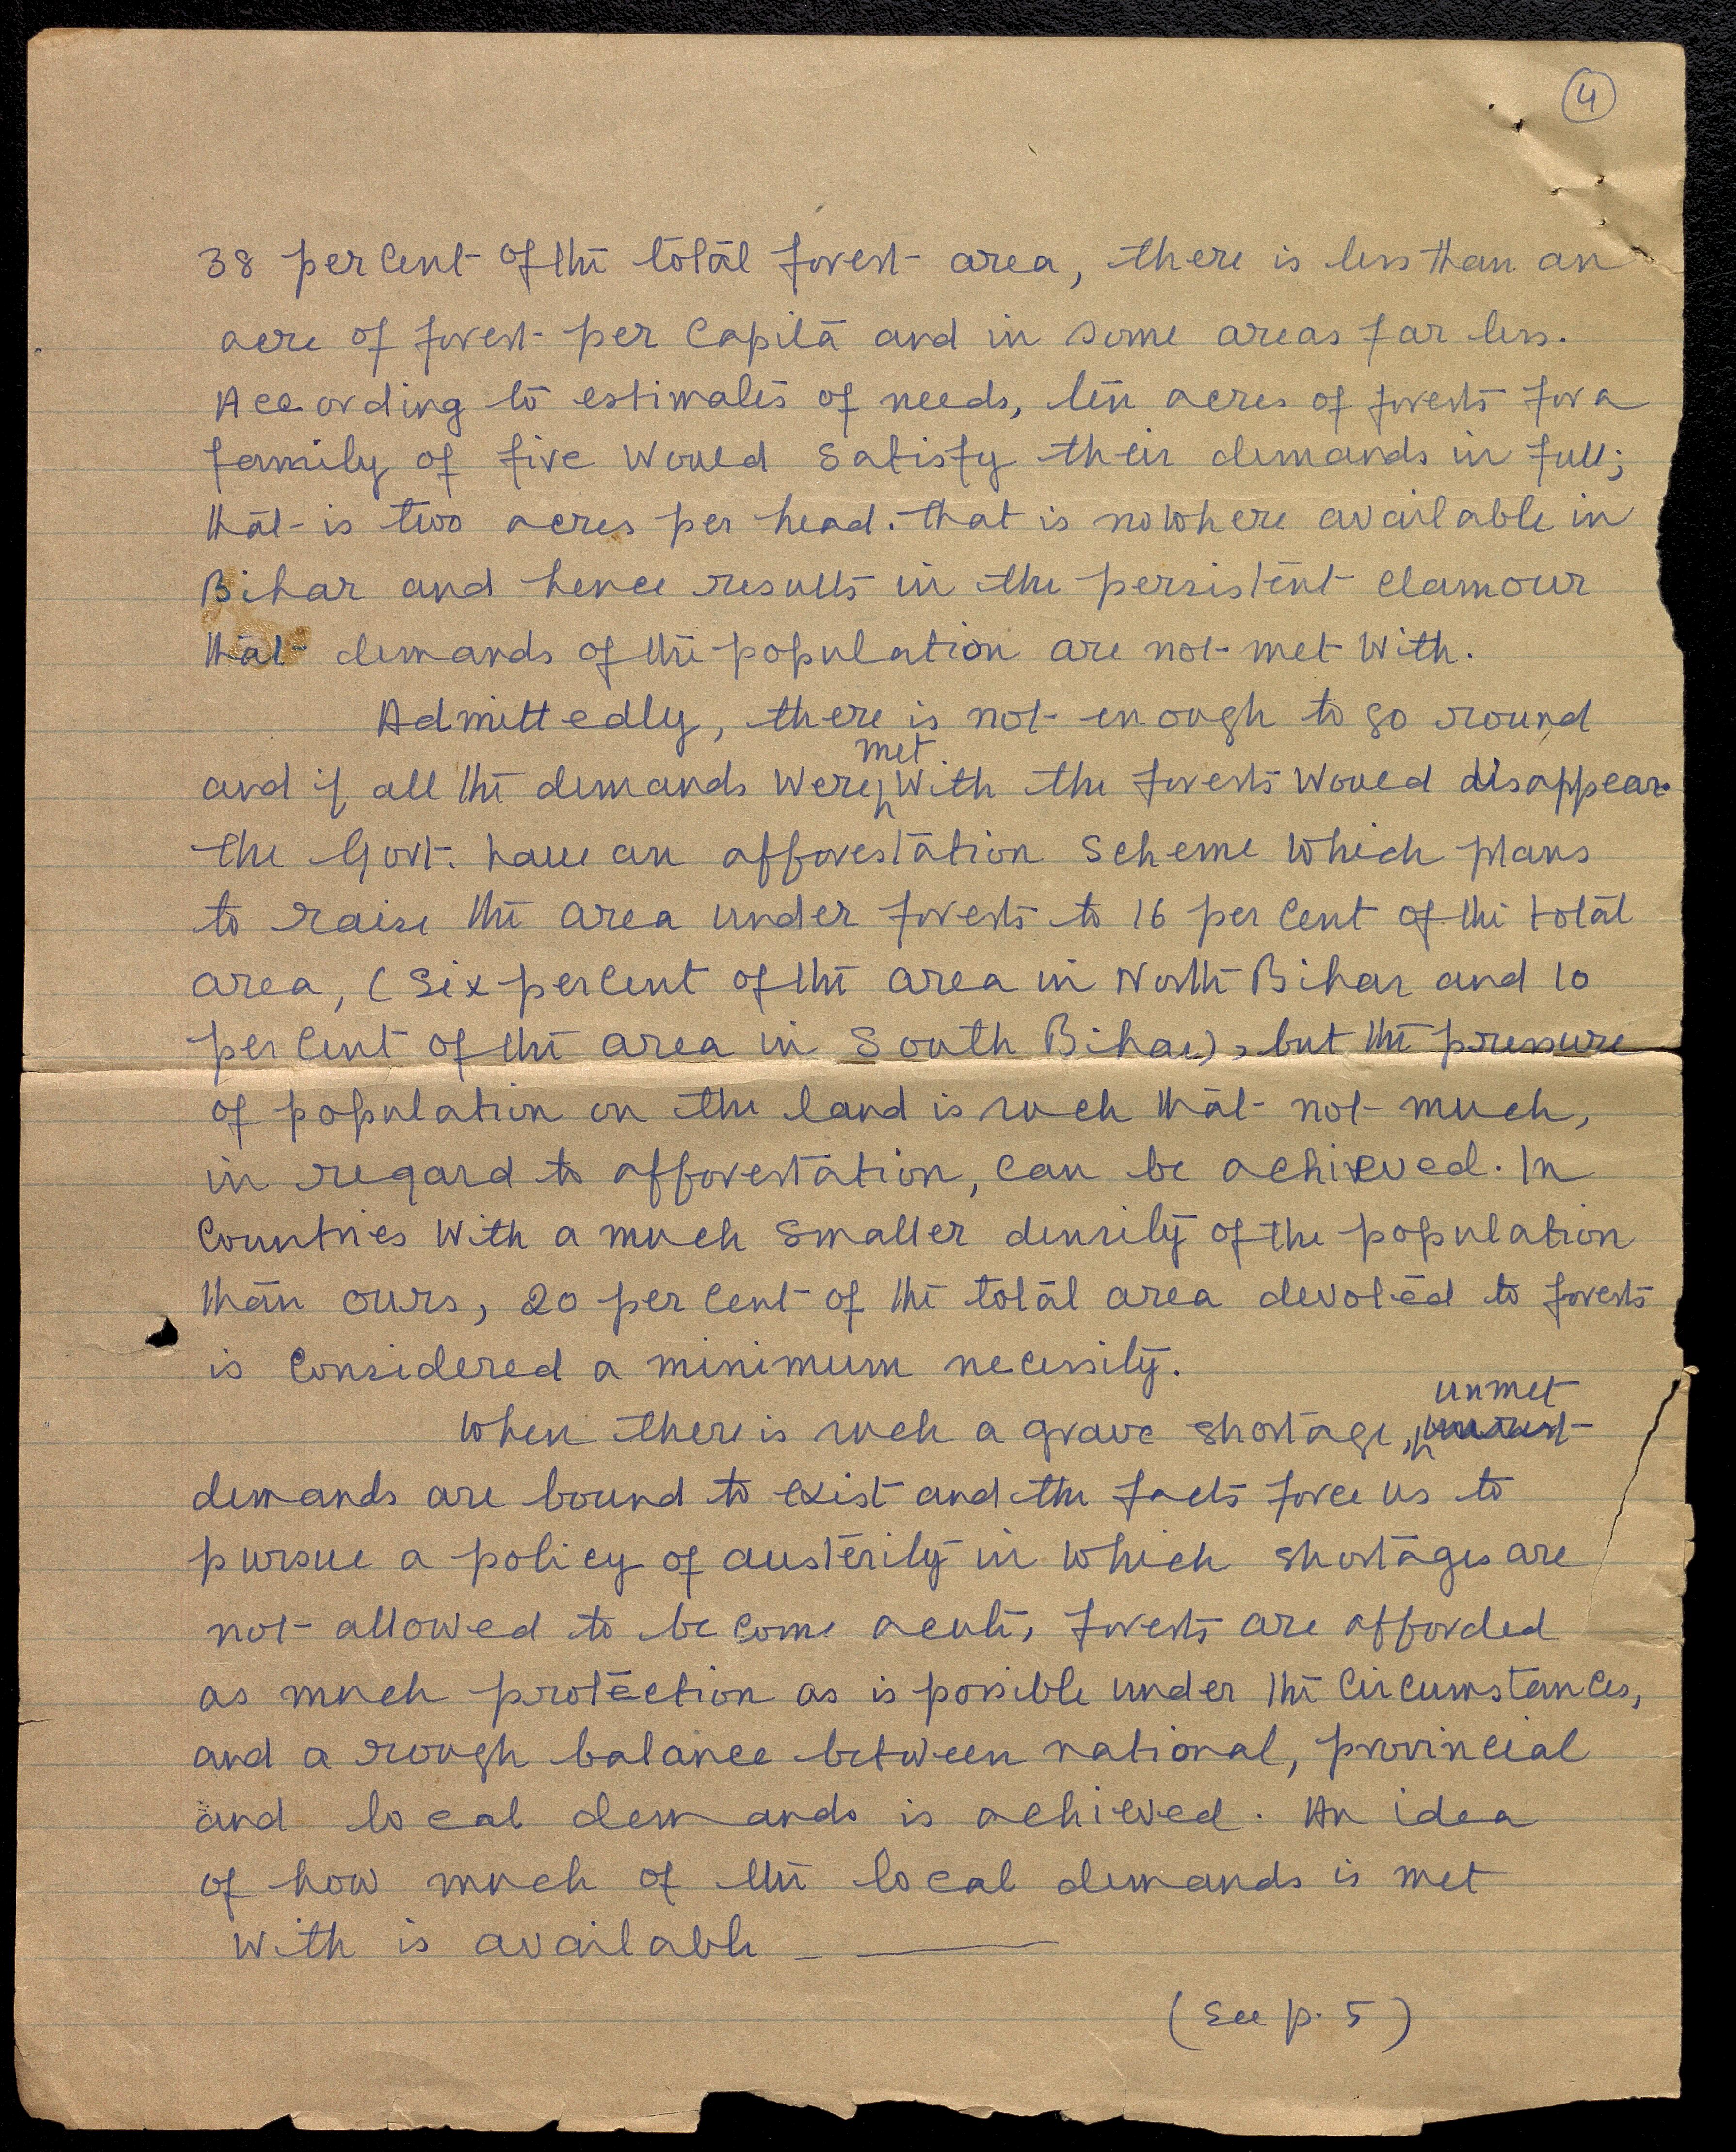 4
38 per cent of the total forest area, there is less than an
acre of forest per capita and in some areas far less.
According to estimates of needs, ten acres of forests for a
family of five would satisfy their demands in full;
that is two acres per head. that is nowhere available in
Bihar and hence results in the persistent clamour
that demands of the population are not met with.
Admittedly, there is not enough to go round
met
and if all the demands were with the forests would disappear.
the Govt. have an afforestation scheme which plans
to raise the area under forests to 16 per cent of the total
area, (six per cent of the area in North Bihar and 10
per cent of the area in South Bihar), but the pressure
of population on the land is such that not much,
in regard to afforestation, can be achieved. In
countries with a much smaller density of the population
than ours, 20 per cent of the total area devoted to forests
is considered a minimum necessity.
unmet
When there is such a grave shortage,
demands are bound to exist and the facts force us to
pursue a policy of austerity in which shortages are
not allowed to become acute, forests are afforded
as much protection as is possible under the circumstances,
and a rough balance between national, provincial
and local demands is achieved. An idea
of how much of the local demands is met
with is available - ———
(See p. 5)